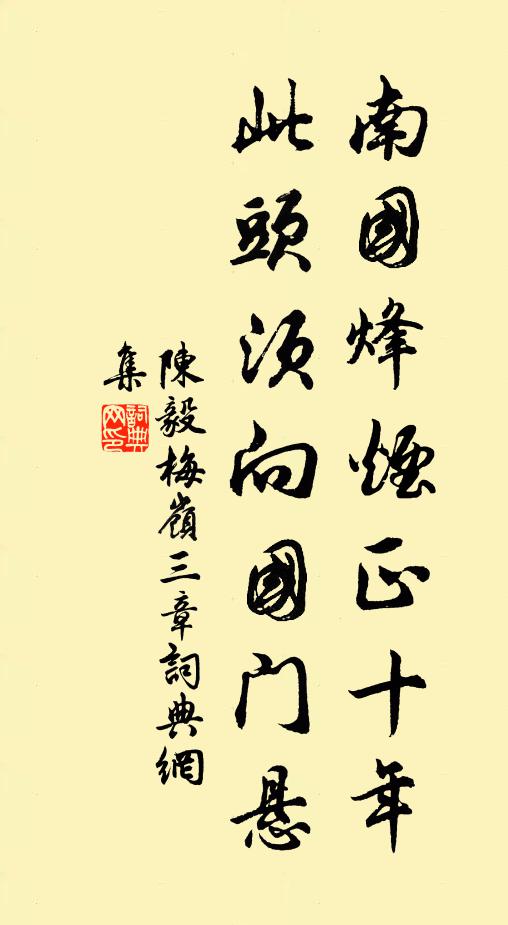 南國烽煙正十年
此頭須向國門悬
陳毅梅嶺三章詞典網
集
詞典
网印